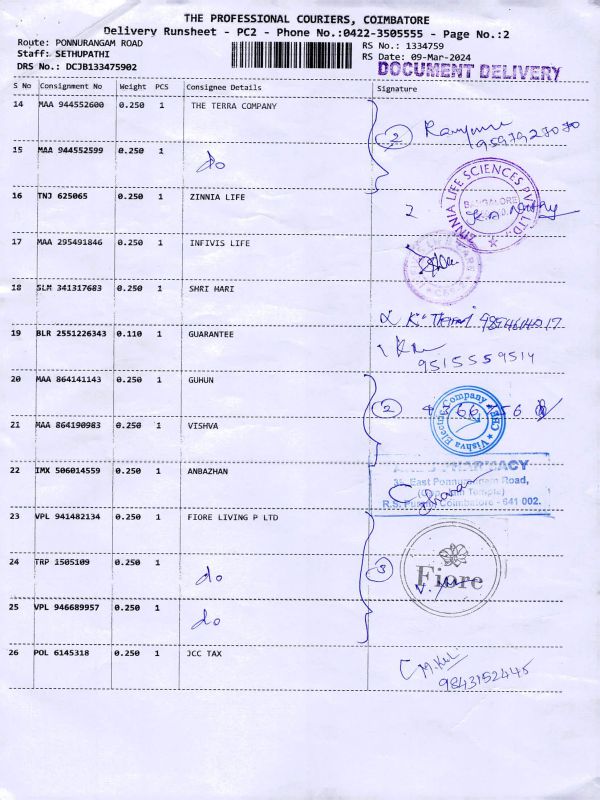 THE PROFESSIONAL COURIERS, COIMBATORE
Delivery Runsheet - PC2 - Phone No.:0422-3505555 - Page No.:2
Route: PONNURANGAM ROAD
Staff: SETHUPATHI
DRS No.: DCJB133475902
RS No.: 1334759
RS Date: 09-Mar-2024
DOCUMENT DELIVERY
S No Consignment No Weight PCS Consignee Details Signature
14 MAA 944552600 0.250 1 THE TERRA COMPANY
2
9597927070
15 MAA 944552599 0.250 1 do
16 TNJ 625065 0.250 1 ZINNIA LIFE
ZINNIA LIFE SCIENCES PVT. LTD.
BANGALORE
17 MAA 295491846 0.250 1 INFIVIS LIFE
18 SLM 341317683 0.250 1 SHRI HARI
19 BLR 2551226343 0.110 1 GUARANTEE
9515559514
20 MAA 864141143 0.250 1 GUHUN
2
Vishva Electric Company
CBE
21 MAA 864190983 0.250 1 VISHVA
22 IMX 506014559 0.250 1 ANBAZHAN
PHARMACY
East Ponnurangam Road,
Temple)
R.S. Puram Coimbatore - 641 002.
23 VPL 941482134 0.250 1 FIORE LIVING P LTD
24 TRP 1505109 0.250 1 do
3
Fiore
25 VPL 946689957 0.250 1 do
26 POL 6145318 0.250 1 JCC TAX
9843152445